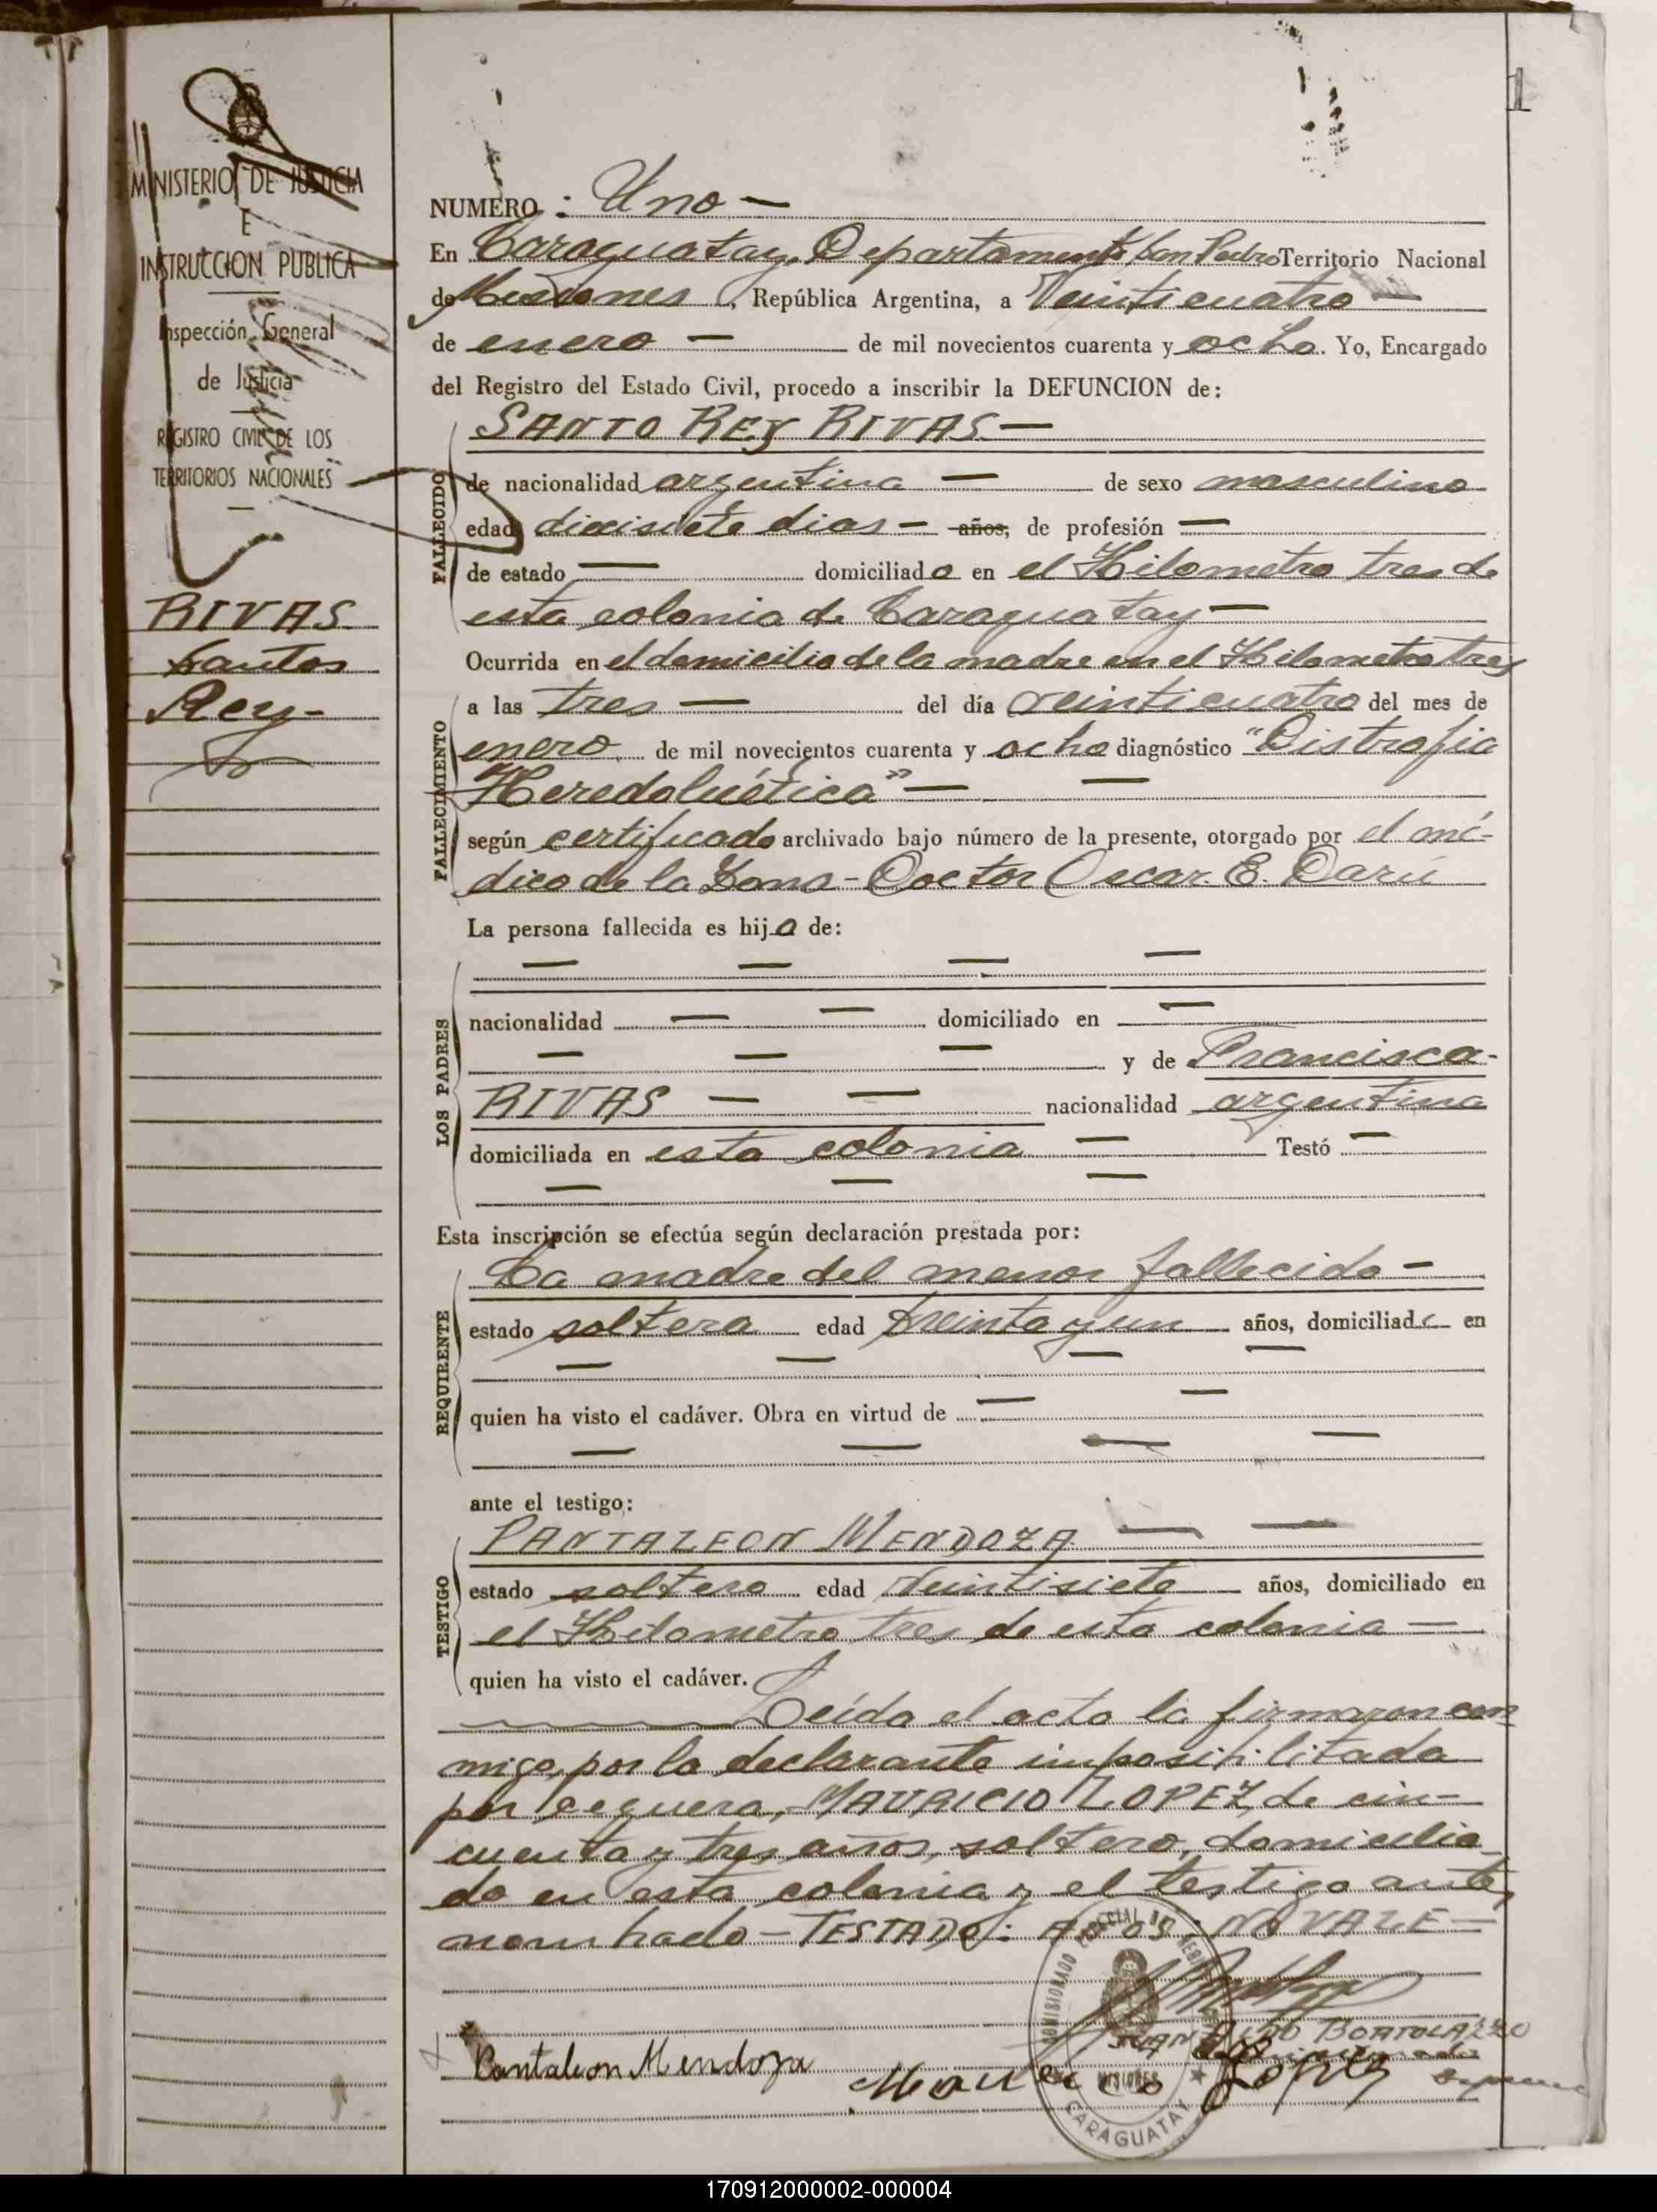 MINISTERIO DE JUSTICIA
E
INSTRUCCION PUBLICA
Inspección General
de Justicia
REGISTRO CIVIL DE LOS
TERRITORIOS NACIONALES
RIVAS
Santos
Rey-
NUMERO: Uno —
En Caraguatay, Departamento San Pedro Territorio Nacional
de Misiones, República Argentina, a Veinticuatro —
de enero — de mil novecientos cuarenta y ocho. Yo, Encargado
del Registro del Estado Civil, procedo a inscribir la DEFUNCION de:
SANTO REY RIVAS —
FALLECIDO
de nacionalidad argentina — de sexo masculino
edad diecisiete dias — años, de profesión —
de estado — domiciliado en el Kilometro tres de
esta colonia de Caraguatay —
Ocurrida en el domicilio de la madre en el Kilometro tres
FALLECIMIENTO
a las tres — del día veinticuatro del mes de
enero de mil novecientos cuarenta y ocho diagnóstico "Distrofia
Heredoluética" — —
según certificado archivado bajo número de la presente, otorgado por el mé-
dico de la Zona - Doctor Oscar E. Darú
La persona fallecida es hijo de:
— — — —
LOS PADRES
nacionalidad — — domiciliado en —
— — — y de Francisca-
RIVAS — — nacionalidad argentina
domiciliada en esta colonia — Testó —
— — —
Esta inscripción se efectúa según declaración prestada por:
La madre del menor fallecido —
REQUIRENTE
estado soltera edad treinta y un años, domiciliada en
— — — —
quien ha visto el cadáver. Obra en virtud de — —
— — — —
ante el testigo:
PANTALEON MENDOZA — —
TESTIGO
estado soltero edad Veintisiete años, domiciliado en
el Kilometro tres de esta colonia —
quien ha visto el cadáver.
Leída el acta la firmaron con-
migo, por la declarante imposibilitada
por ceguera, MAURICIO LOPEZ, de cin-
cuenta y tres años, soltero, domicilia-
do en esta colonia y el testigo ante
nombrado — TESTADO: AÑOS: NO VALE —
BORTOLAZZO
Pantaleon Mendoza
Mauricio Lopez
MISIONES
CARAGUATAY
170912000002-000004